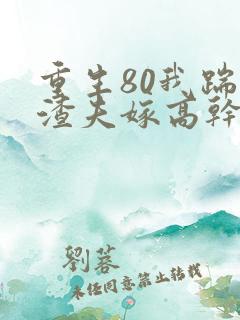 重生80我踹
渣夫嫁高幹
劉蓉
未经同意禁止转载